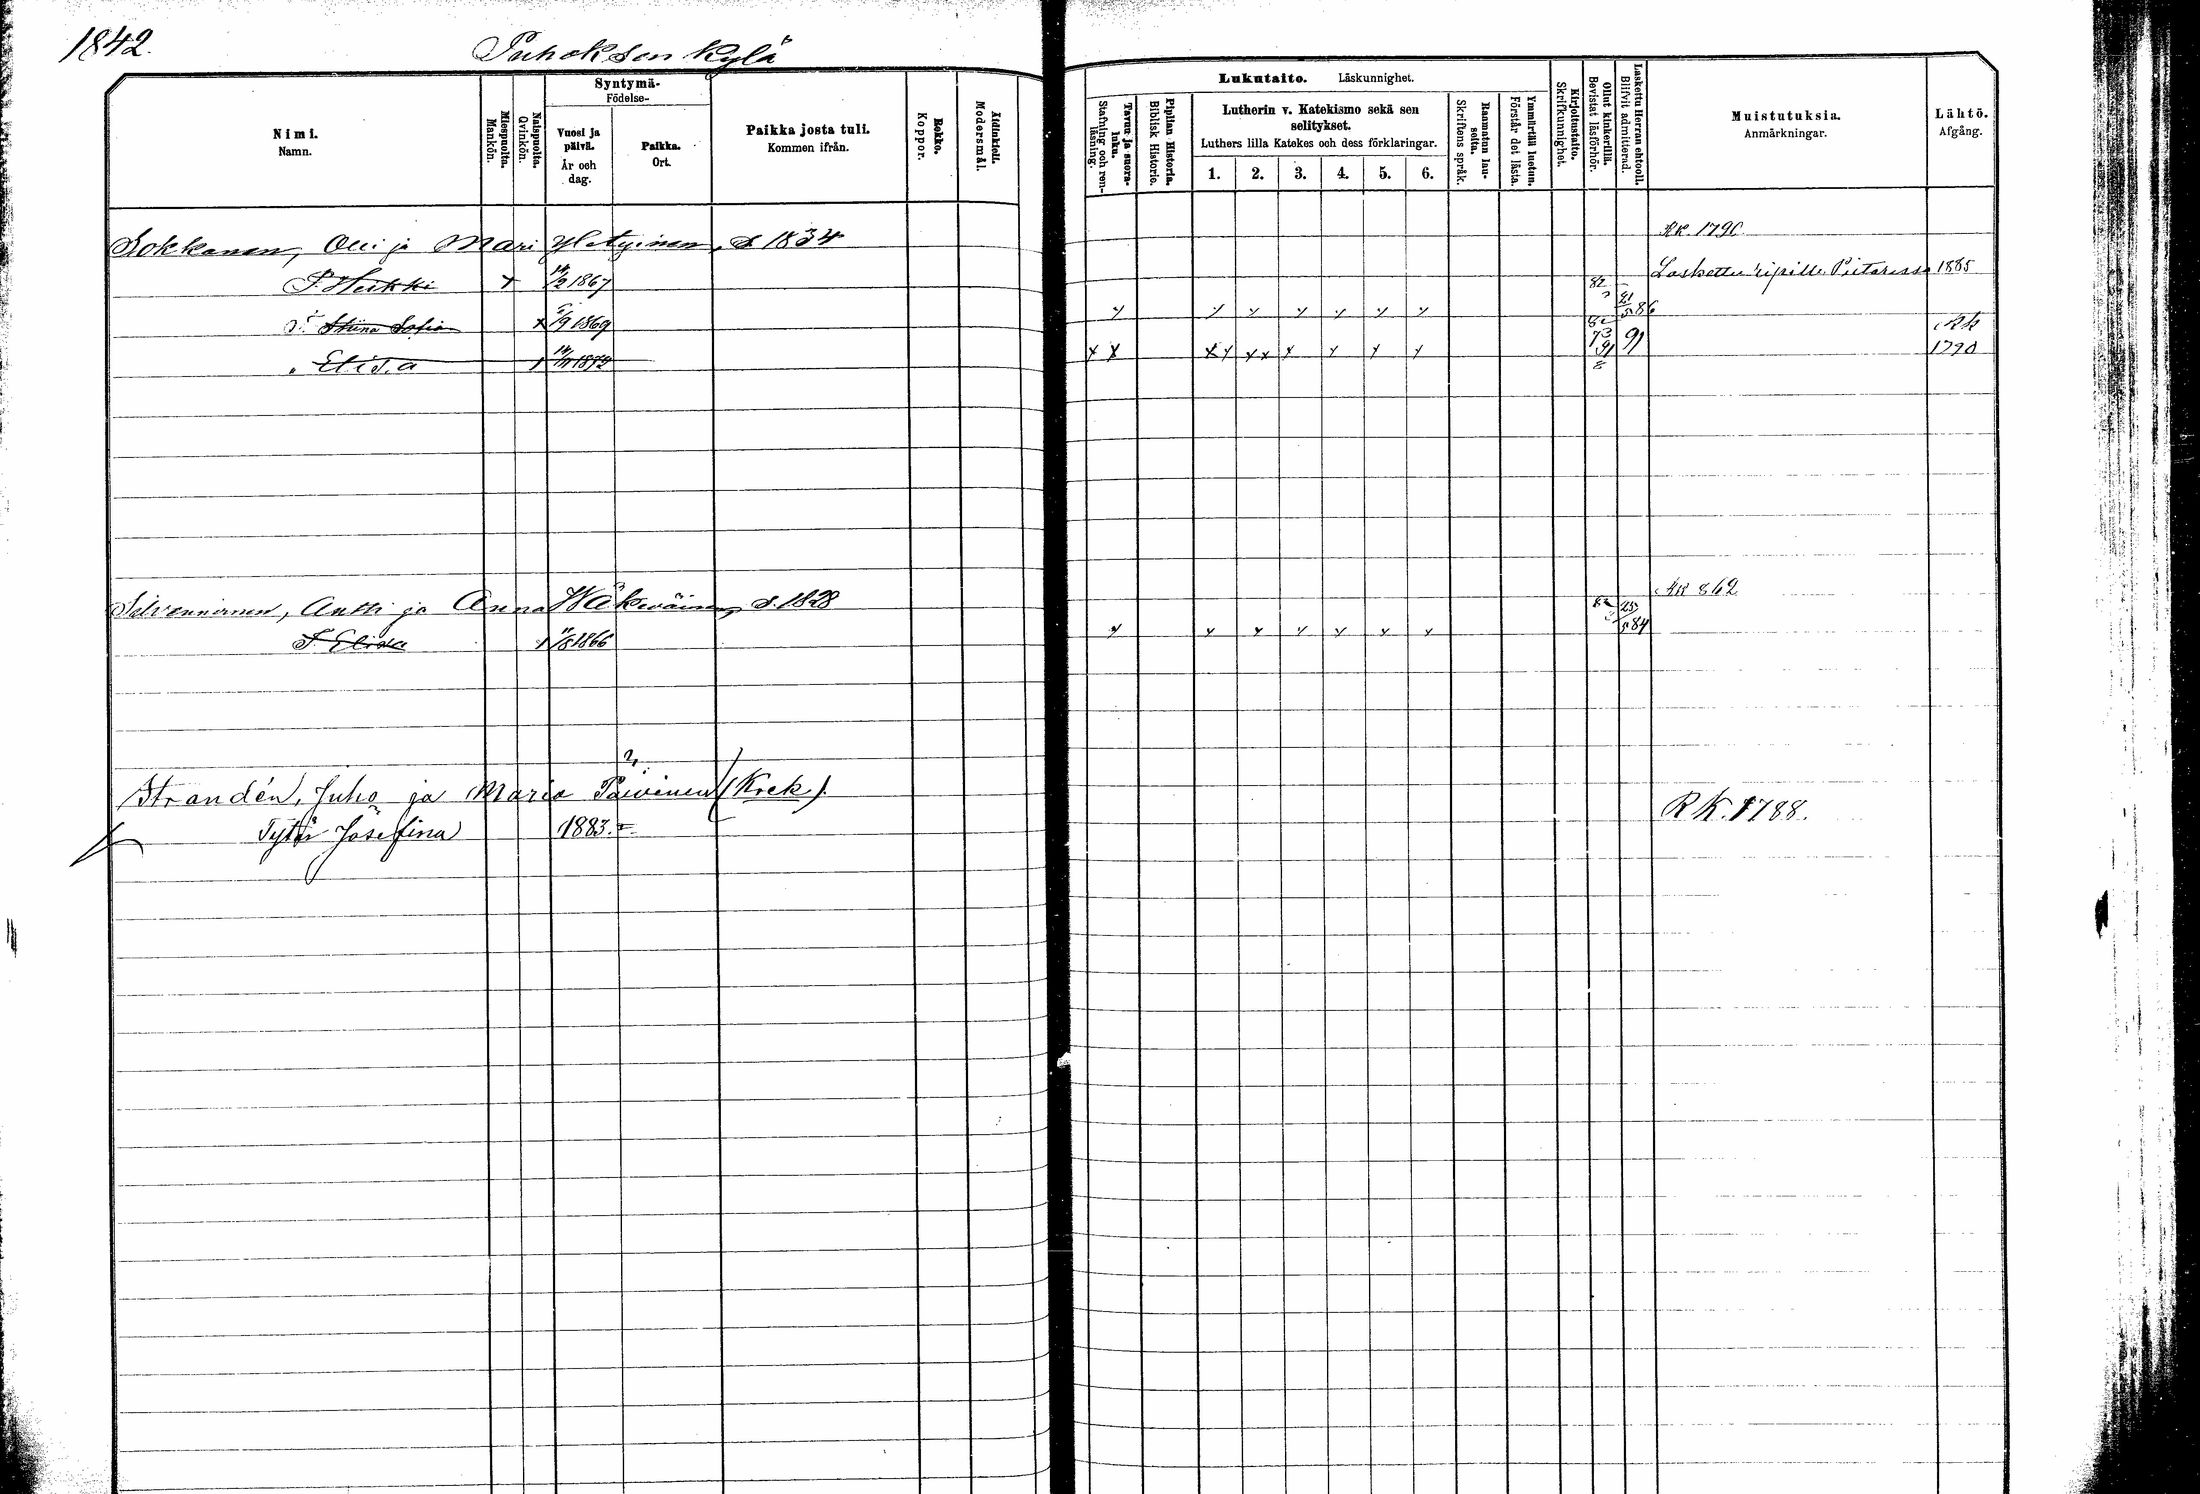 1842.
Puhoksen kylä
Nimi.
Namn.
Miespuolta.
Mankön.
Naispuolta.
Qvinkön.
Syntymä-
Födelse-
Vuosi ja
päivä.
År och
dag.
Paikka.
Ort.
Paikka josta tuli.
Kommen ifrån.
Rokko.
Koppor.
Äidinkieli.
Modersmål.
Lukutaito. Läskunnighet.
Tavuu ja suora-
luku.
Stafning och ren-
läsning.
Piplian Historia.
Biblisk Historie.
Lutherin v. Katekismo sekä sen
selitykset.
Luthers lilla Katekes och dess förklaringar.
1. 2. 3. 4. 5. 6.
Raamatun lau-
seita.
Skriftens språk.
Ymmärtää luetun.
Förstår det lästa.
Kirjoitustaito.
Skrifkunnighet.
Ollut kinkerillä.
Bevistat läsförhör.
Laskettu Herran ehtooll.
Blifvit admitterad.
Muistutuksia.
Anmärkningar.
Lähtö.
Afgång.
Sokkanen, Olli ja Mari Yletyinen, s. 1834
RK. 1790
P. Heikki x 14/2 1867 82 Laskettu ripille Pietarissa 1885
T. Stiina Sofia x 5/9 1869 21/5 86
" Elisa x 14/11 1872 73 91 91 Rk 1790
Silvennoinen, Antti ja Anna Wäkeväinen s. 1828 RK 862
T. Elisa x 11/8 1866 82 25/5 84
Strandén, Juho ja Maria Päivinen (Krek)
Tytär Josefina 1883. RK. 1788.